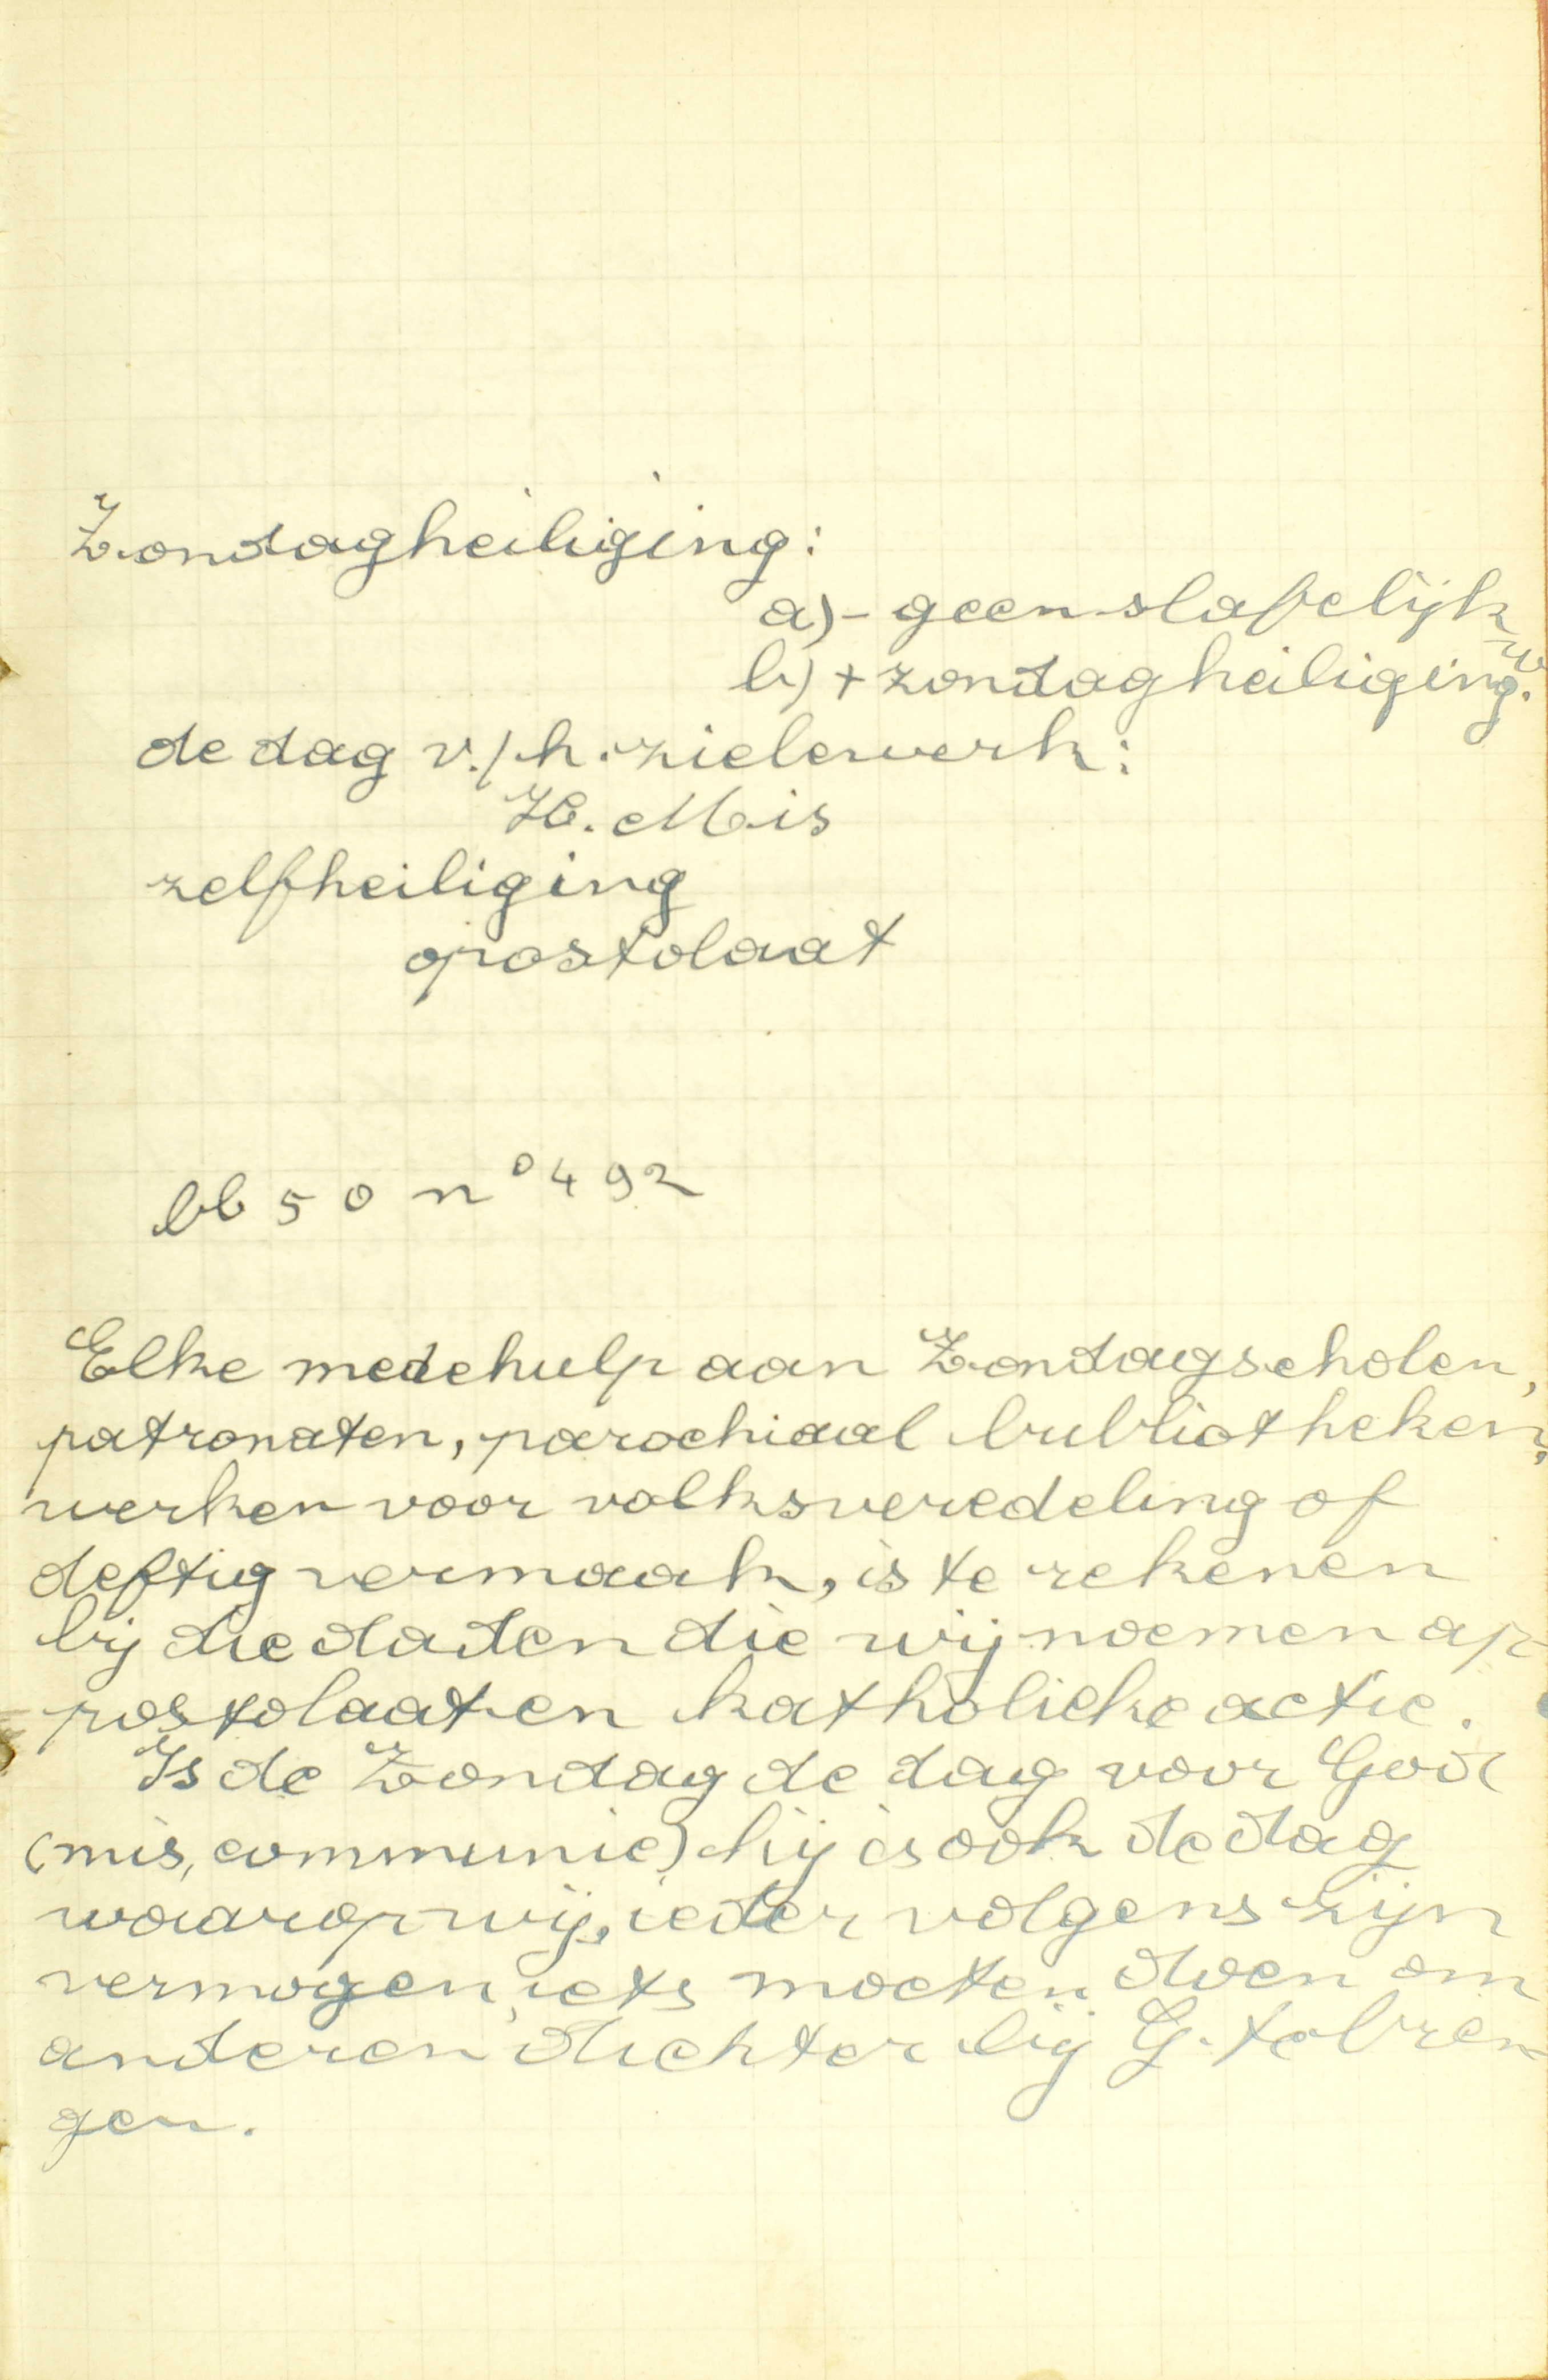 Zondagheiliging:
a) - geen slafelijk w
b) + zondagheiliging.
de dag v./h. zielewerk:
H. Mis
zelfheiliging
apostolaat
bb 50 n° 492
Elke medehulp aan Zondagscholen,
patronaten, parochiaal bibliotheken,
werken voor volksveredeling of
deftig vermaak, is te rekenen
bij die daden die wij noemen ap-
postolaat en katholieke actie.
Is de Zondag de dag voor God
(mis, communie) hij is ook de dag
waarop wij, ieder volgens zijn
vermogen, iets moeten doen om
anderen dichter bij G. te bren-
gen.